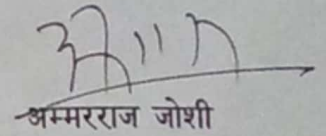 अम्मरराज जोशी